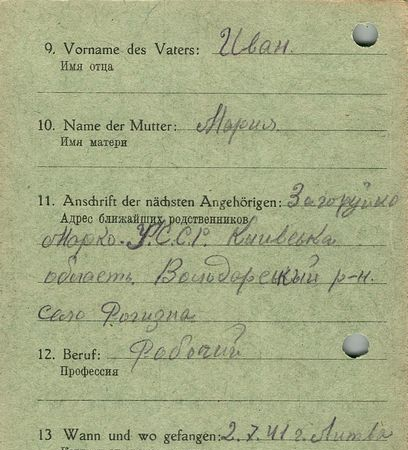 9. Vorname des Vaters: Иван.
Имя отца
10. Name der Mutter: Мария
Имя матери
11. Anschrift der nächsten Angehörigen: Загоруйко
Адрес ближайших родственников
Марко. У.С.С.Р. Київська
область. Володарський р-н.
село Рогизна
12. Beruf: Рабочий
Профессия
13 Wann und wo gefangen: 2.7.41 г. Литва